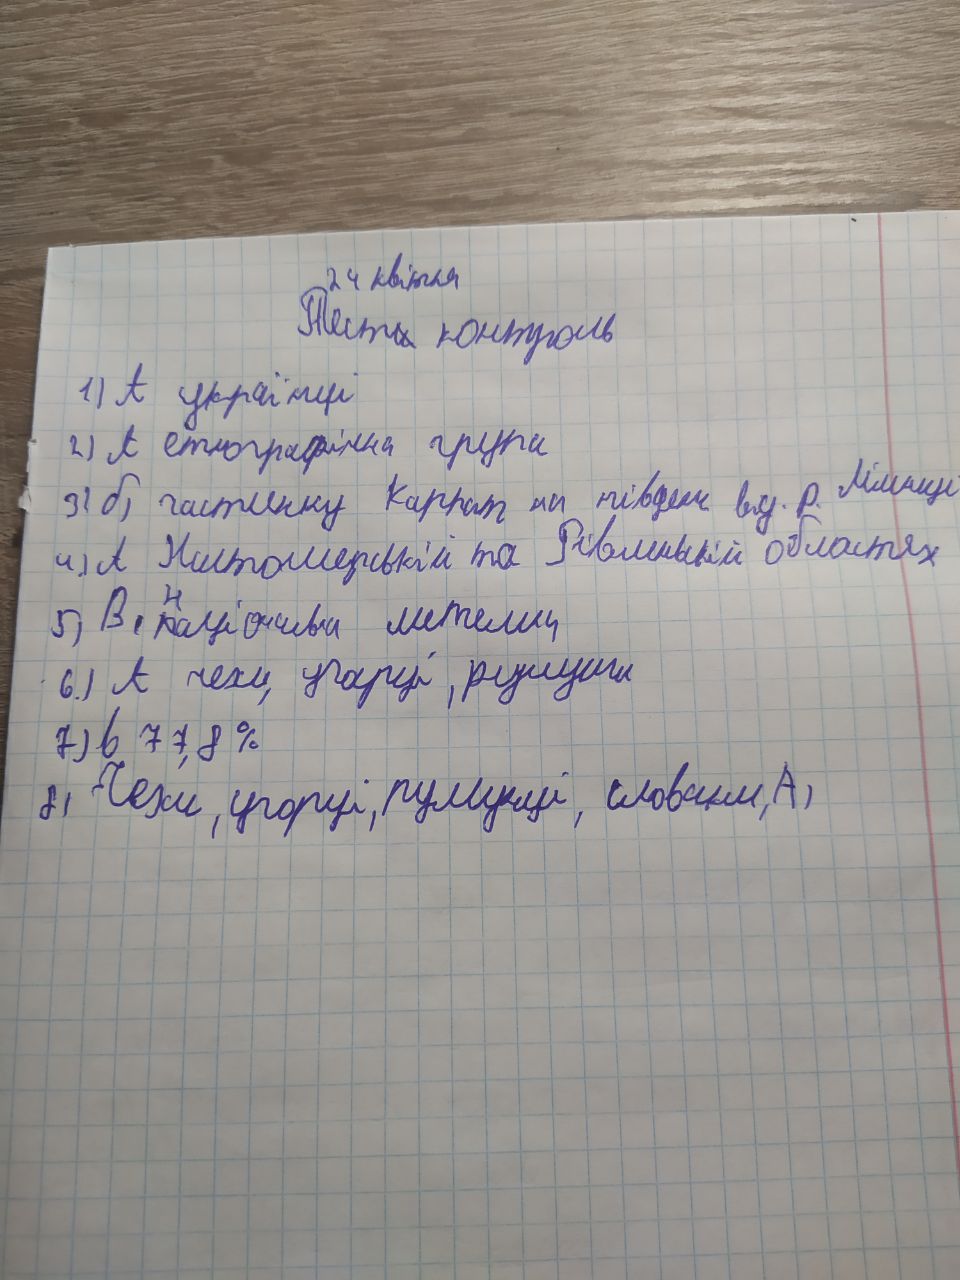 24 квітня
Тести контроль
1) А українці
2) А етнографічна група
3) б) частину Карпат на південь від. р. Лімниці
4) А Житомирській та Рівненській областях
5) В. Національна меншина
6.) А чехи, угорці, румуни
7) в 77,8 %
8) Чехи, угорці, румунці, словаки, А)